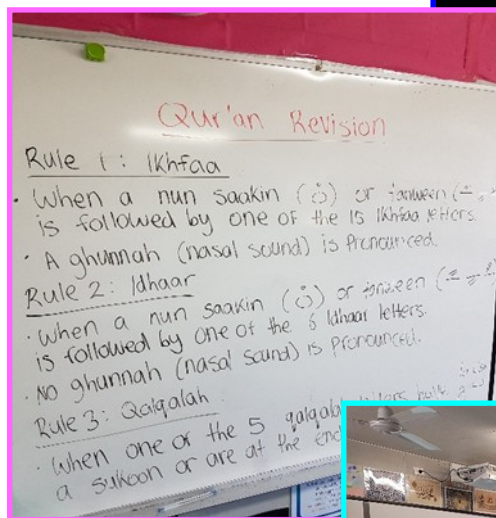 Qur'an Revision
Rule 1: Ikhfaa
· When a nun saakin (نْ) or tanween (ـً
is followed by one of the 15 Ikhfaa letters.
· A ghunnah (nasal sound) is Pronounced.
Rule 2: Idhaar
· When a nun saakin (نْ) or tanween
is followed by one of the 6 Idhaar letters.
· NO ghunnah (nasal sound) is Pronounced.
Rule 3: Qalqalah
· When one of the 5 qalqala letters
a sukoon or are at the end